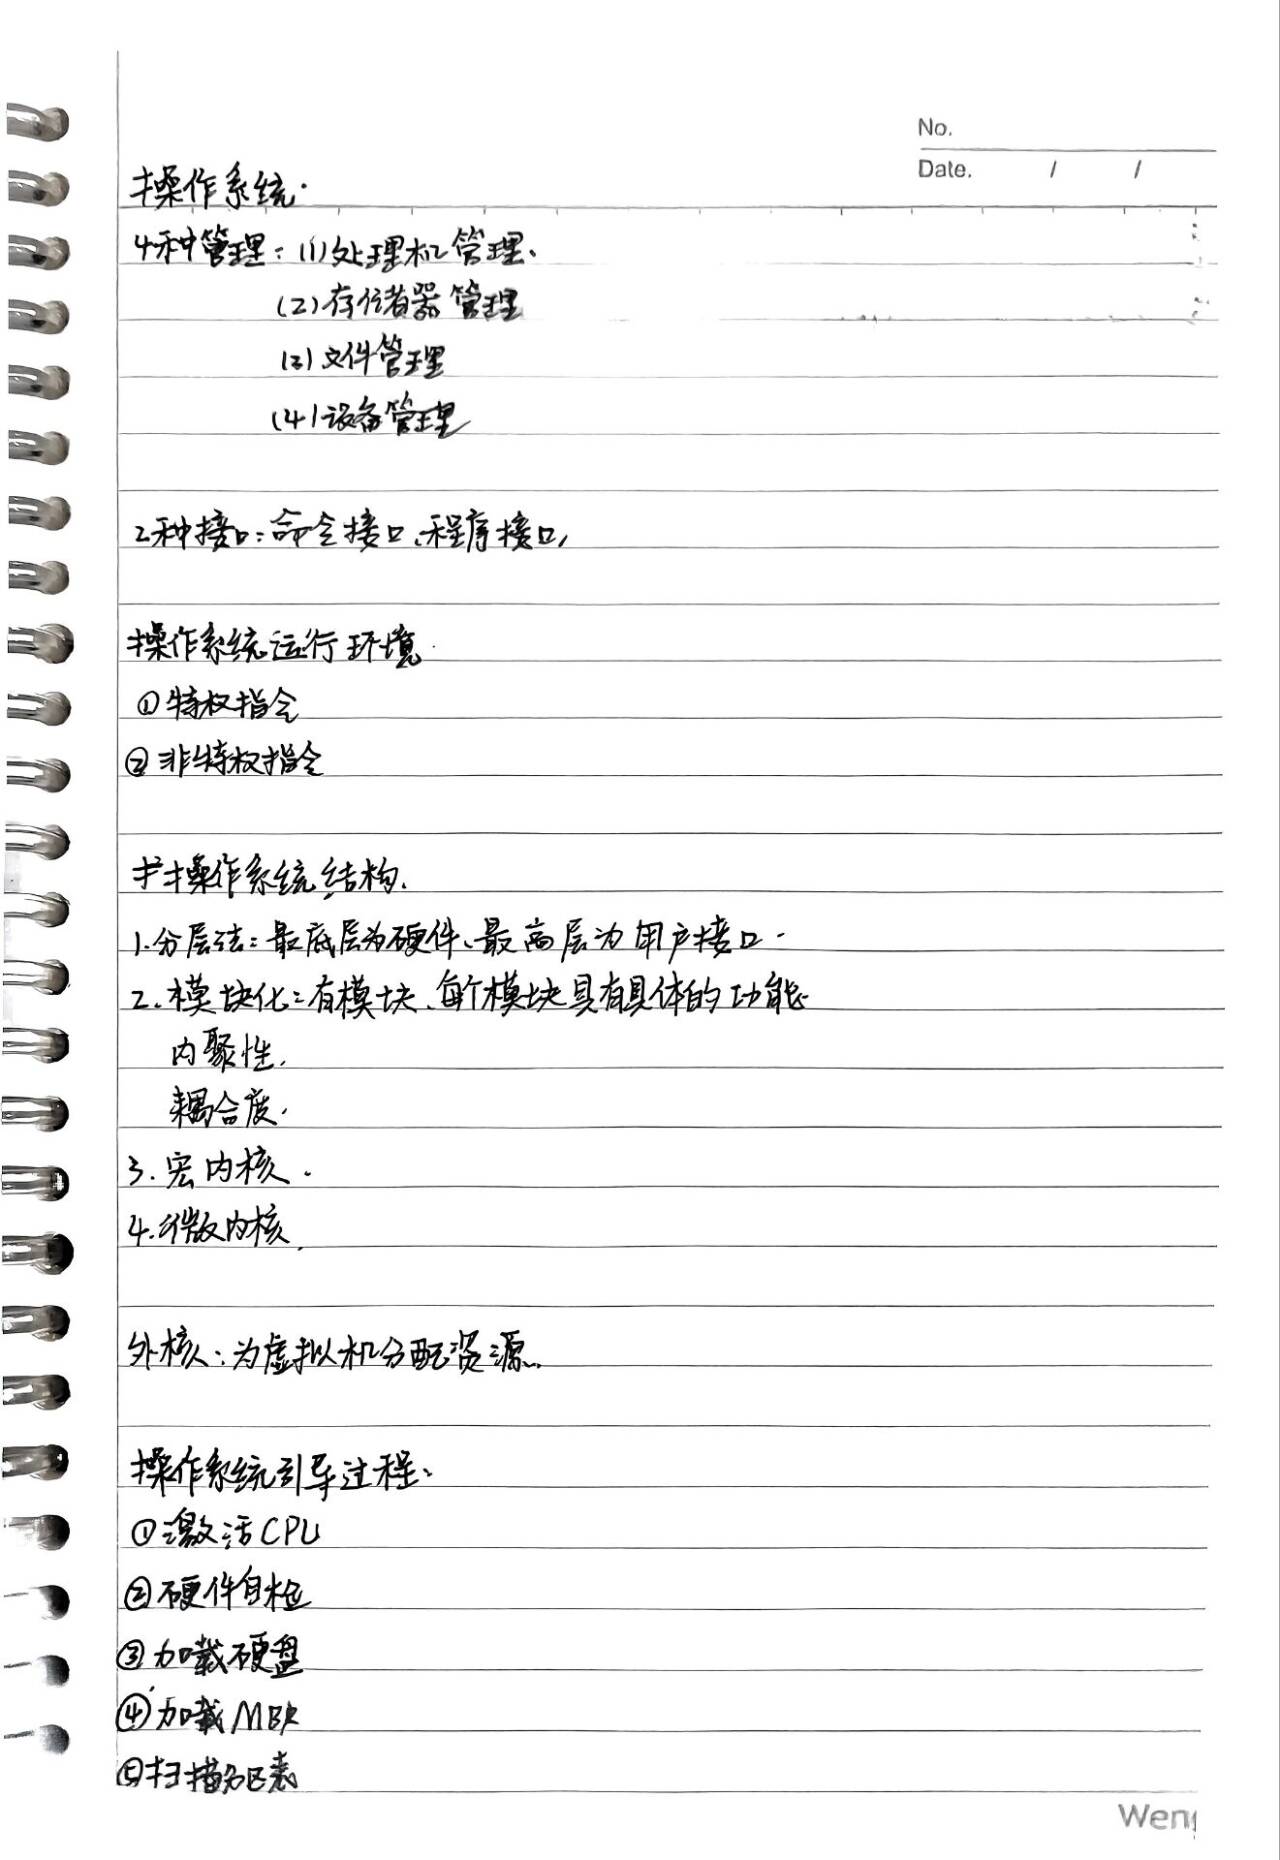 No.
Date. / /
操作系统.
4种管理: (1)处理机管理.
(2)存储器管理
(3)文件管理
(4)设备管理
2种接口:命令接口、程序接口,
操作系统运行环境.
①特权指令
②非特权指令
操作系统结构.
1.分层法:最底层为硬件、最高层为用户接口.
2.模块化:有模块、每个模块具有具体的功能
内聚性.
耦合度.
3.宏内核.
4.微内核.
外核:为虚拟机分配资源.
操作系统引导过程:
①激活CPU
②硬件自检
③加载硬盘
④加载MBR
⑤扫描分区表
Weng